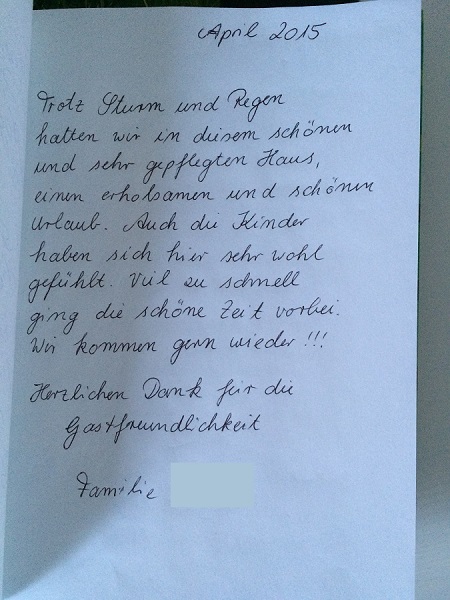 April 2015
Trotz Sturm und Regen
hatten wir in diesem schönen
und sehr gepflegten Haus,
einen erholsamen und schönen
Urlaub. Auch die Kinder
haben sich hier sehr wohl
gefühlt. Viel zu schnell
ging die schöne Zeit vorbei.
Wir kommen gern wieder !!!
Herzlichen Dank für die
Gastfreundlichkeit
Familie